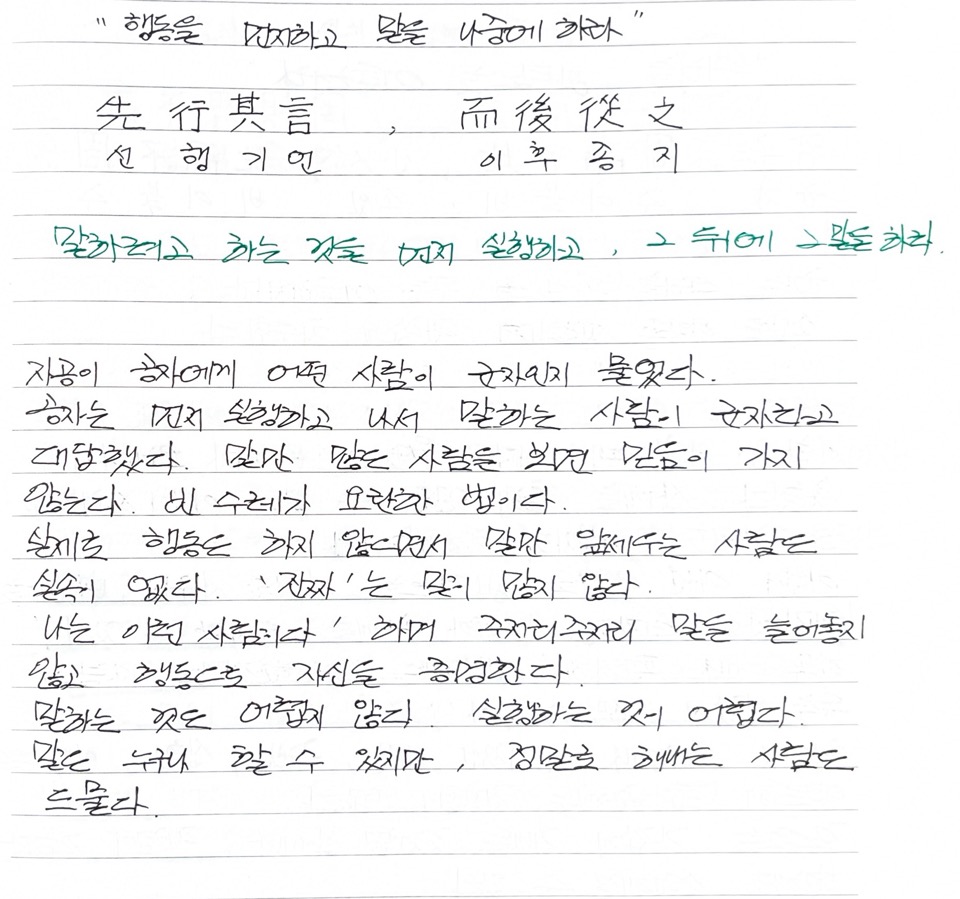 "행동을 먼저하고 말을 나중에 하라"
先行其言 , 而後從之
선행기언 이후종지
말하려고 하는 것을 먼저 실행하고, 그 뒤에 그 말을 하라.
자공이 공자에게 어떤 사람이 군자인지 물었다.
공자는 먼저 실행하고 나서 말하는 사람이 군자라고
대답했다. 말만 많은 사람을 보면 믿음이 가지
않는다. 빈 수레가 요란한 법이다.
실제로 행동은 하지 않으면서 말만 앞세우는 사람은
실속이 없다. '진짜'는 말이 많지 않다.
나는 이런 사람이다' 하며 주저리주저리 말을 늘어놓지
않고 행동으로 자신을 증명한다.
말하는 것은 어렵지 않다. 실행하는 것이 어렵다.
말은 누구나 할 수 있지만, 정말로 해내는 사람은
드물다.